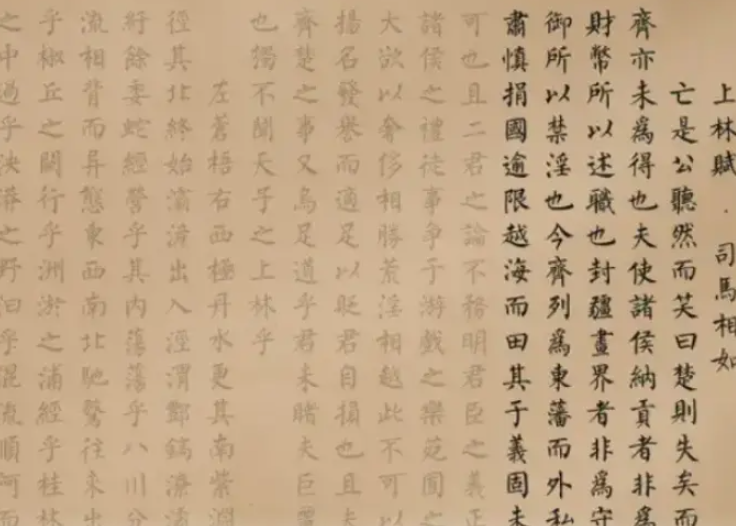 上林賦·司馬相如
亡是公聽然而笑曰楚則失矣而
齊亦未爲得也夫使諸侯納貢者非爲
財幣所以述職也封疆畫界者非爲守
御所以禁淫也今齊列爲東藩而外私
肅慎捐國逾限越海而田其于義固未
可也且二君之論不務明君臣之義正
諸侯之禮徒事爭于游戲之樂苑囿之
大欲以奢侈相勝荒淫相越此不可以
揚名發譽而適足以貶君自損也且夫
齊楚之事又烏足道乎君未睹夫巨麗
也獨不聞天子之上林乎
左蒼梧右西極丹水更其南紫淵
徑其北終始灞滻出入涇渭酆鎬潦潏
紆餘委蛇經營乎其內蕩蕩乎八川分
流相背而異態東西南北馳騖往來出
乎椒丘之闕行乎洲淤之浦經乎桂林
之中過乎泱漭之野汩乎混流順阿而